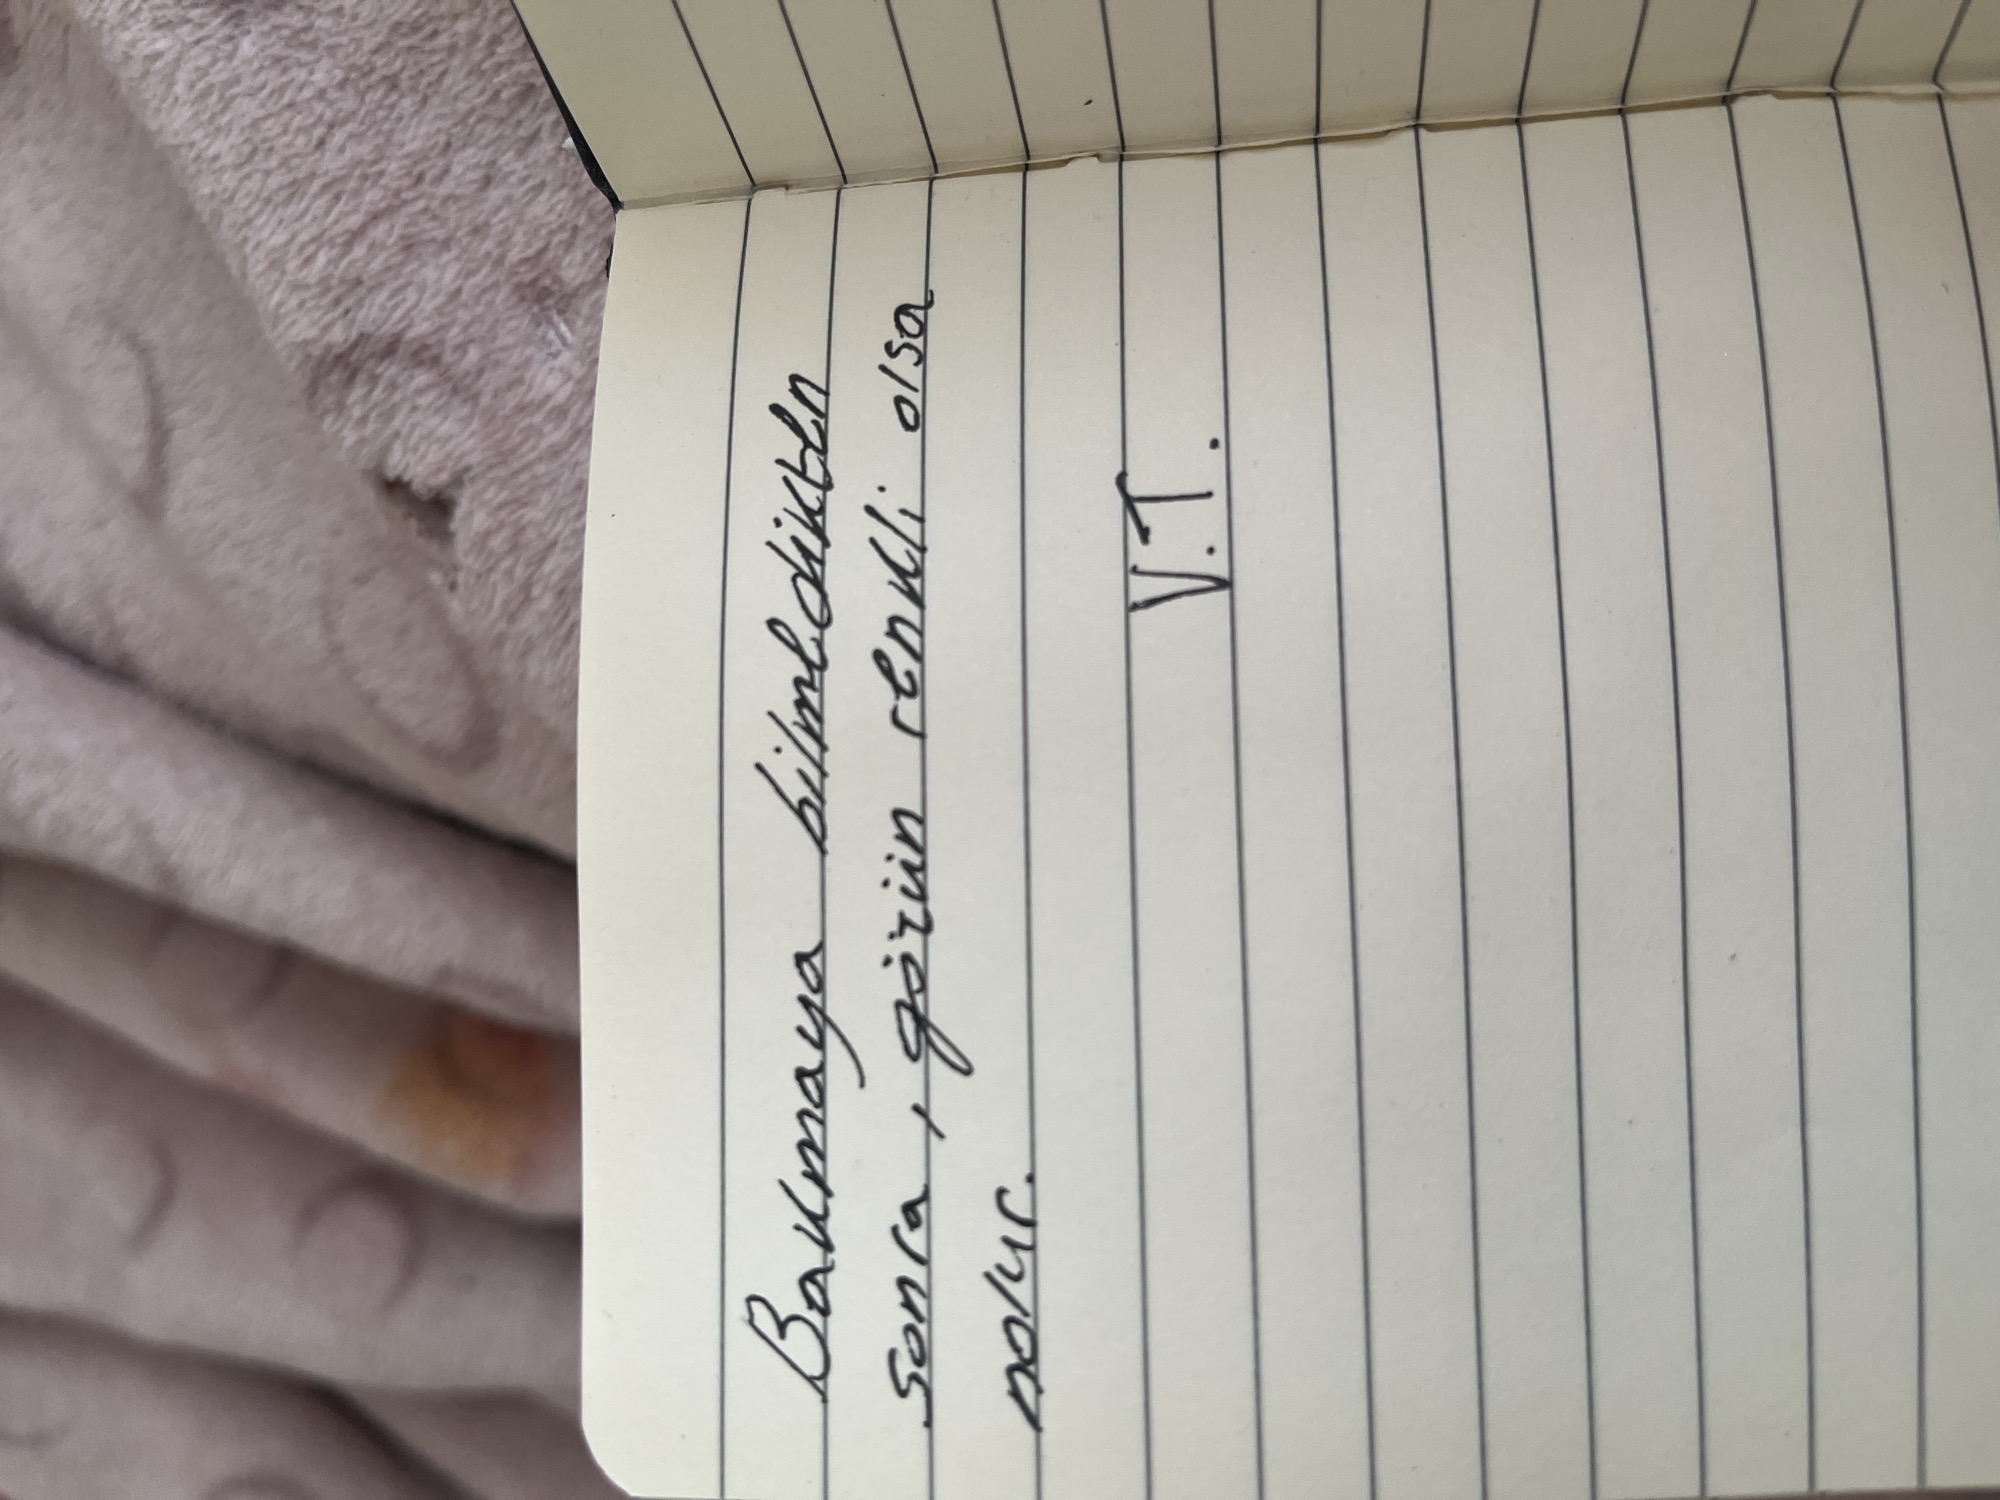 Bakmaya bilmedikten
sonra, gözün renkli olsa
nolur.
V.T.